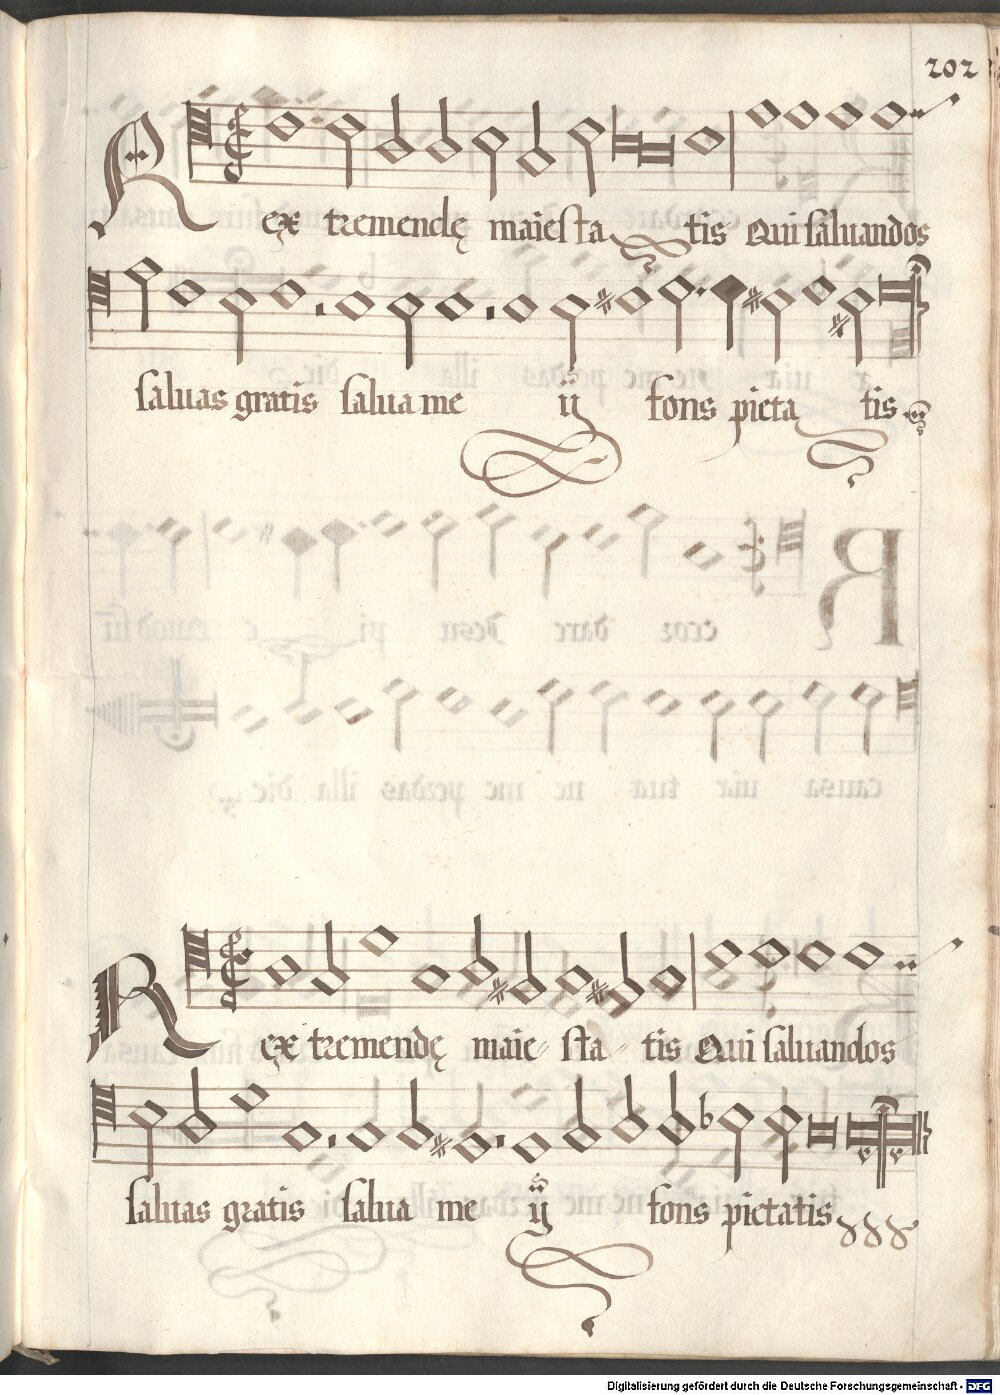 202
Rex tremendę maiesta tis Qui saluandos
saluas gratis salua me ij fons pieta tis
Rex tremendę maie sta tis Qui saluandos
saluas gratis salua me ij fons pietatis
Digitalisierung gefördert durch die Deutsche Forschungsgemeinschaft - DFG